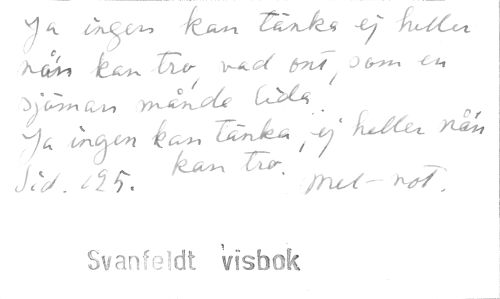 Ja ingen kan tänka ej heller
nån kan tro, vad ont, som en
sjöman månde lida.
Ja ingen kan tänka, ej heller nån
kan tro.
Sid. 195. Mel-not.
Svanfeldt visbok